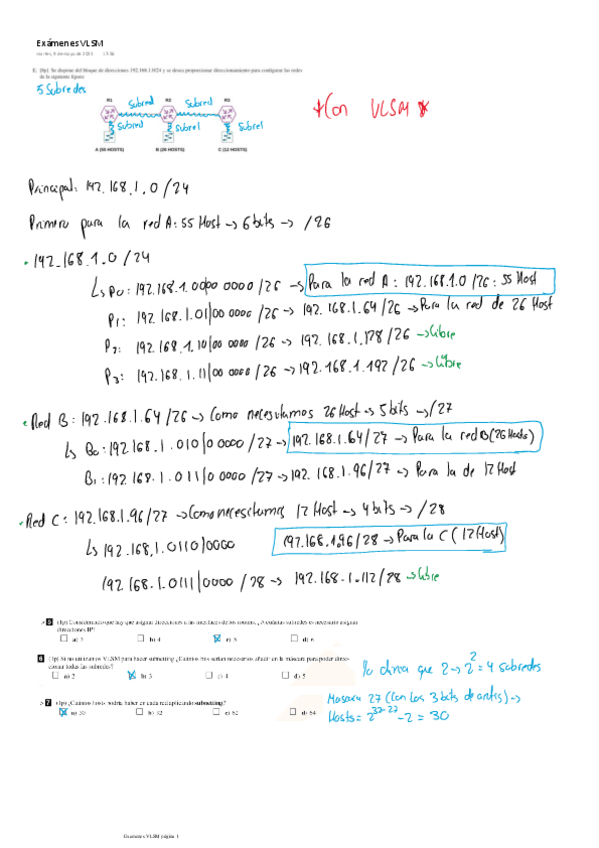 Exámenes VLSM
5. (1p) Se dispone del bloque de direcciones 192.168.1.0/24 y se desea proporcionar direccionamiento para configurar las redes
de la siguiente figura:
5 Subredes
Subred Subred
R1 R2 R3
Subred Subred Subred
A (55 HOSTS) B (26 HOSTS) C (12 HOSTS)
*Con VLSM *
Principal: 192.168.1.0/24
Primero para la red A: 55 Host → 6 bits → /26
192.168.1.0/24
↳ P0: 192.168.1.00|00 0000/26 → Para la red A: 192.168.1.0/26: 55 Host
P1: 192.168.1.01|00 0000/26 → 192.168.1.64/26 → Para la red de 26 Host
P2: 192.168.1.10|00 0000/26 → 192.168.1.128/26 → Libre
P3: 192.168.1.11|00 0000/26 → 192.168.1.192/26 → Libre
Red B: 192.168.1.64/26 → Como necesitamos 26 Host → 5 bits → /27
↳ B0: 192.168.1.010|0 0000/27 → 192.168.1.64/27 → Para la red B (26 Hosts)
B1: 192.168.1.011|0 0000/27 → 192.168.1.96/27 → Para la de 12 Host
Red C: 192.168.1.96/27 → Como necesitamos 12 Host → 4 bits → /28
↳ 192.168.1.0110|0000 192.168.1.96/28 → Para la C (12 Host)
192.168.1.0111|0000/28 → 192.168.1.112/28 → Libre
5 (1p) Considerando que hay que asignar direcciones a las interfaces de los routers, ¿A cuántas subredes es necesario asignar
direcciones IP?
a) 3 b) 4 c) 5 d) 6
6 (1p) Si no utilizamos VLSM para hacer subnetting ¿Cuántos bits serían necesarios añadir en la máscara para poder direc-
cionar todas las subredes?
a) 2 b) 3 c) 4 d) 5
2 → 2² = 4 subredes
7 (1p) ¿Cuántos hosts podría haber en cada red aplicando subnetting?
a) 30 b) 32 c) 62 d) 64
Mascara 27 (Con los 3 bits de antes) →
Hosts = 2³²⁻²⁷ - 2 = 30
Exámenes VLSM página 1